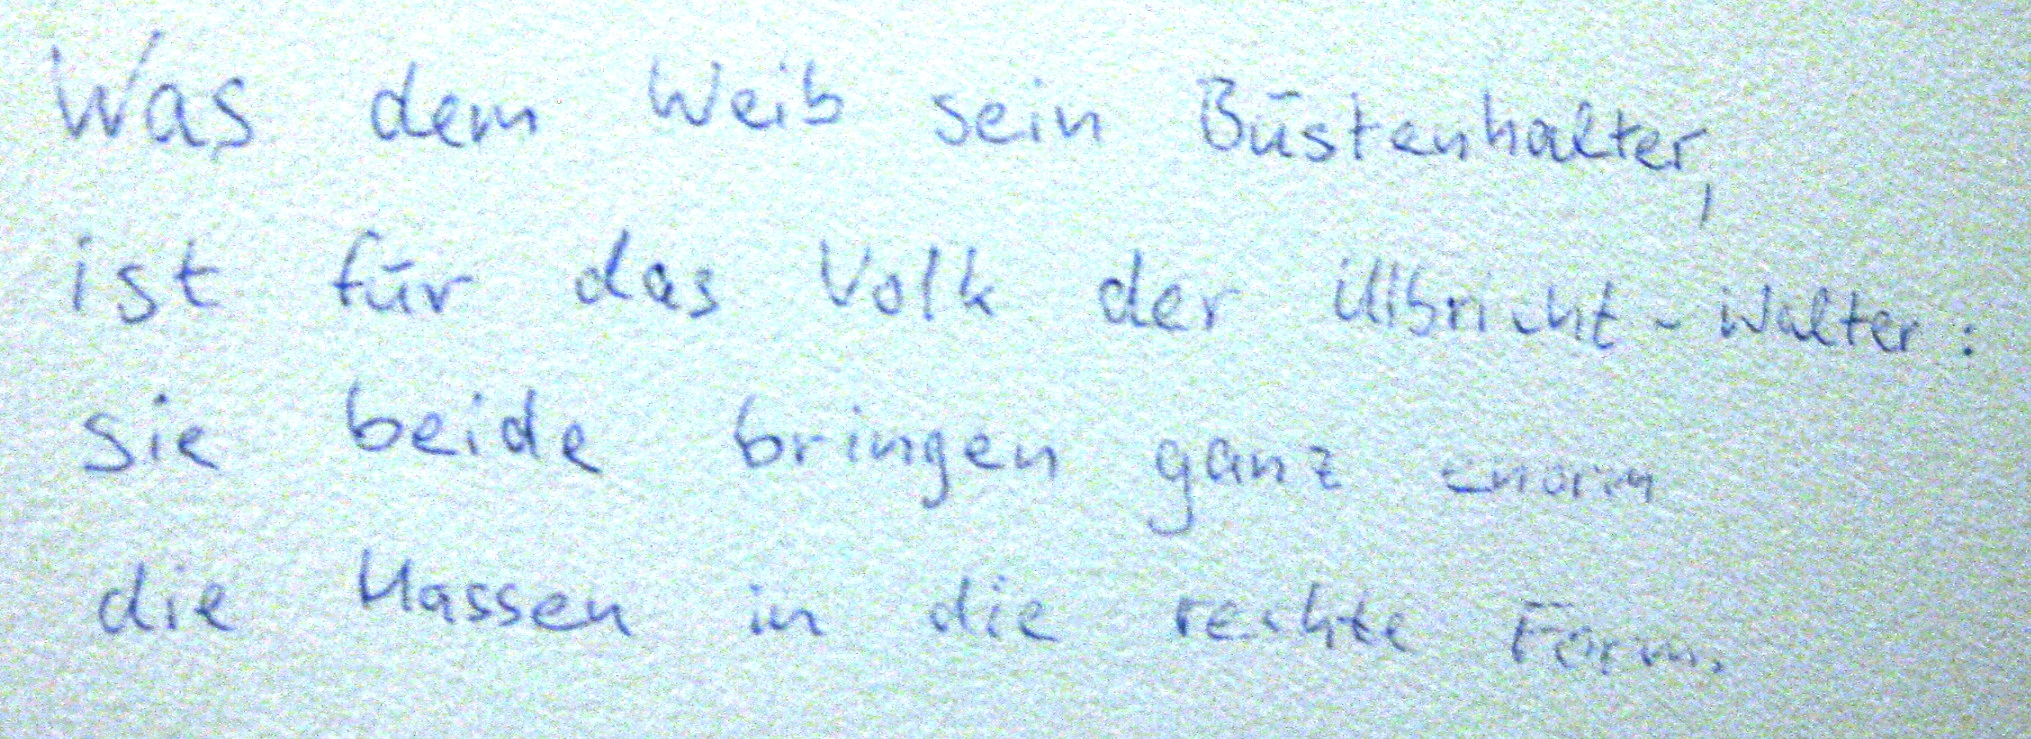 Was dem Weib sein Büstenhalter,
ist für das Volk der Ulbricht-Walter:
sie beide bringen ganz enorm
die Massen in die rechte Form.